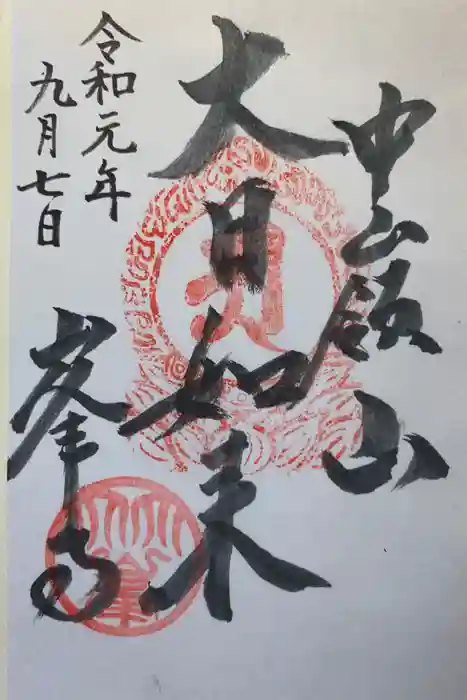 中嶺山
大日如来
峯寺
令和元年
九月七日